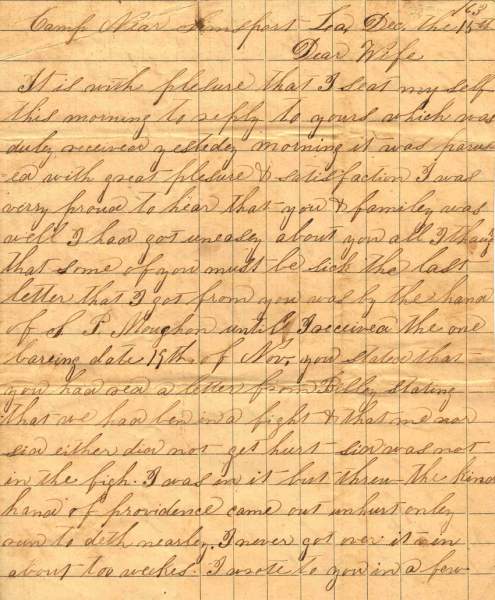 1863
Camp Near Simsport La, Dec, the 15th
Dear Wife
It is with plesure that I seat my self
this morning to reply to yours which was
duley received yestedey morning it was perus
ed with great plesure & satisfaction I was
verry proud to hear that you & familey was
well I had got uneasey about you all I thaug
that some of you must be sick the last
letter that I got from you was by the hand
of S P Moughon until I received the one
bareing date 19th of Nov, you stated that
you had red a letter from Billey stating
that we had ben in a fight & that me nor
sid either did not get hurt sid was not
in the figh. I was in it but threw the kind
hand of providence came out unhurt only
run to deth nearley. I never got over it in
about too weekes. I wrote to you in a few